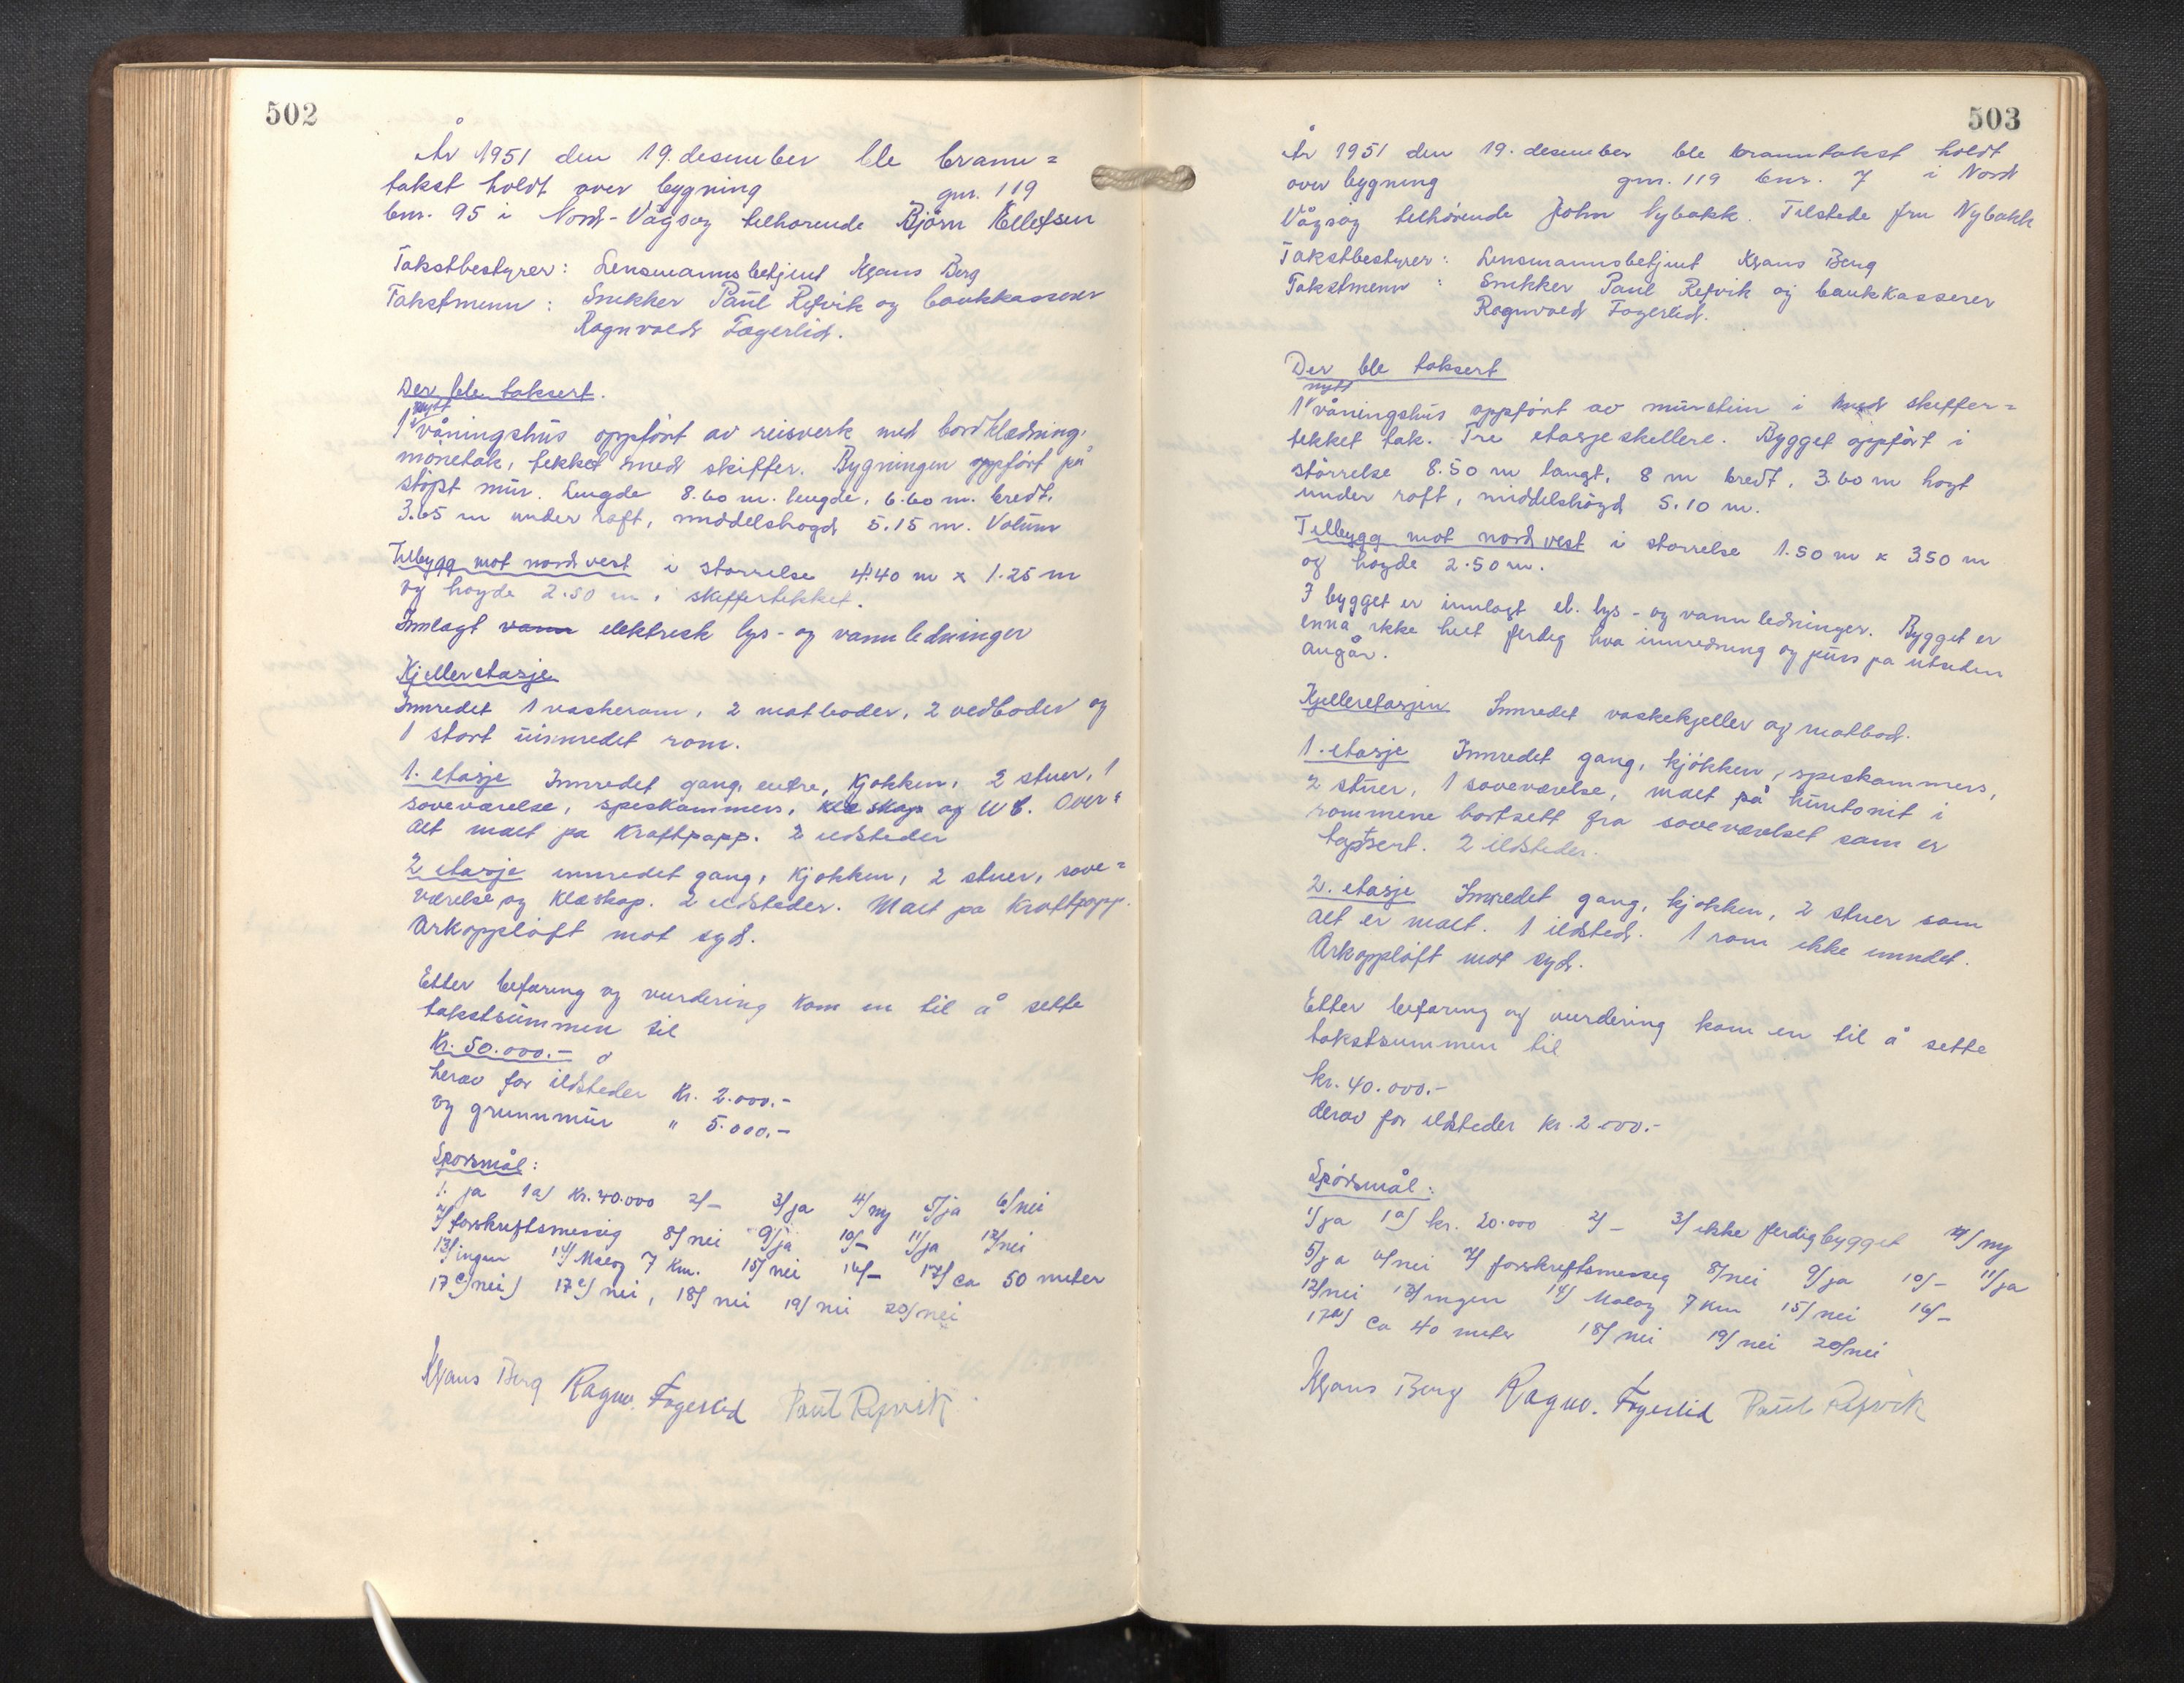 502
År 1951 den 19. desember ble brann=
takst holdt over bygning gnr. 119
bnr. 95 i Nord-Vågsøy tilhørende Bjørn Ellefsen
Takstbestyrer: Lensmannsbetjent Klaus Berg
Takstmenn: Snekker Paul Refvik og bankkasserer
Ragnvald Fagerlid.
Der ble taksert.
nytt
1 våningshus oppført av reisverk med bordklædning,
mønetak, tekket med skiffer. Bygningen oppført på
støpt mur. Lengde 8.60 m. lengde, 6.60 m. bredt,
3.65 m under raft, middelshøgd 5.15 m. Volum
Tilbygg mot nordvest i størrelse 4.40 m x 1.25 m
og høyde 2.50 m, skiffertekket.
Innlagt vann elektrisk lys- og vannledninger
Kjelleretasje
Innredet 1 vaskerom, 2 matboder, 2 vedboder og
1 stort uinnredet rom.
1. etasje Innredet gang, entre, kjøkken, 2 stuer, 1
soveværelse, speskammers, kleskap og WC. Over=
alt malt på kraftpapp. 2 ildsteder
2 etasje innredet gang, kjøkken, 2 stuer, sove=
værelse og kleskap. 2 ildsteder. Malt på kraftpapp.
Arkoppløft mot syd.
Etter befaring og vurdering kom en til å sette
takstsummen til
Kr. 50.000.-
herav for ildsteder Kr. 2.000.-
og grunnmur " 5.000.-
Spørsmål:
1. ja 1a/ Kr. 40.000 2/- 3/ja 4/ny 5/ja 6/nei
7/forskriftsmessig 8/nei 9/ja 10/- 11/ja 12/nei
13/ingen 14/Måløy 7 Km. 15/nei 16/- 17/ ca 50 meter
17 c/nei) 17 e/ nei, 18/ nei 19/ nei 20/nei
Klaus Berg Ragnv. Fagerlid Paul Refvik
503
År 1951 den 19. desember ble branntakst holdt
over bygning gnr. 119 bnr. 7 i Nord
Vågsøy tilhørende John Nybakk. Tilstede fru Nybakk
Takstbestyrer: Lensmannsbetjent Klaus Berg
Takstmenn: Snekker Paul Refvik og bankkasserer
Ragnvald Fagerlid.
Der ble taksert
nytt
1 våningshus oppført av murstein i med skiffer=
tekket tak. Tre etasjeskillere. Bygget oppført i
størrelse 8.50 m langt, 8 m bredt, 3.60 m høyt
under raft, middelshøgd 5.10 m.
Tilbygg mot nordvest i størrelse 1.50 m x 350 m
og høyde 2.50 m.
I bygget er innlagt el. lys- og vannledninger. Bygget er
ennå ikke helt ferdig hva innredning og puss på utsiden
angår.
Kjelleretasjen Innredet vaskekjeller og matbod.
1. etasje Innredet gang, kjøkken, speskammers,
2 stuer, 1 soveværelse, malt på huntonit i
rommene bortsett fra soveværelset som er
tapsert. 2 ildsteder.
2. etasje Innredet gang, kjøkken, 2 stuer som
alt er malt. 1 ildsted. 1 rom ikke innredet.
Arkoppløft mot syd.
Etter befaring og vurdering kom en til å sette
takstsummen til
kr. 40.000.-
derav for ildsteder kr. 2.000.-
Spørsmål:
1/ja 1a/ kr. 20.000 2/- 3/ ikke ferdigbygget 4/ ny
5/ja 6/nei 7/ forskriftsmessig 8/nei 9/ja 10/- 11/ja
12/nei 13/ingen 14/ Måløy 7 Km 15/ nei 16/-
17a/ ca 40 meter 18/ nei 19/ nei 20/nei
Klaus Berg Ragnv. Fagerlid Paul Refvik